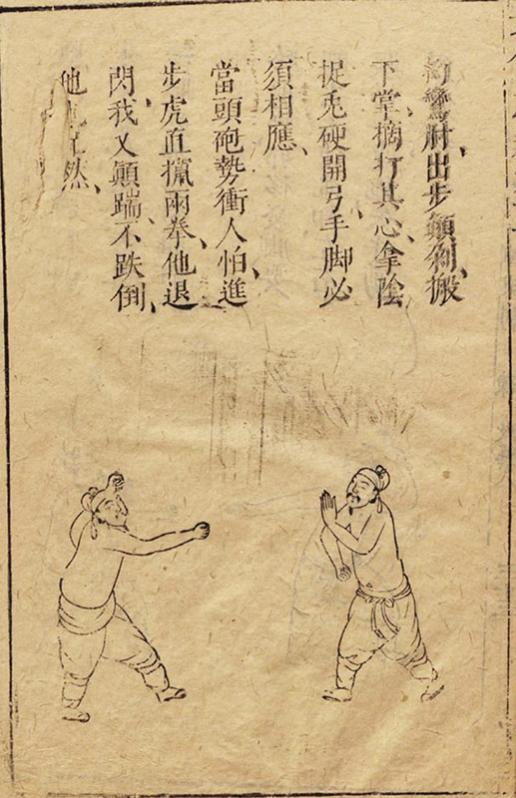 拗鸞肘、出步顛剁、搬
下掌、摘打其心、拿陰
捉兎硬開弓、手脚必
須相應、
當頭砲勢衝人怕、進
步虎直攛兩拳、他退
閃、我又顛踹、不跌倒、
他也忙然、